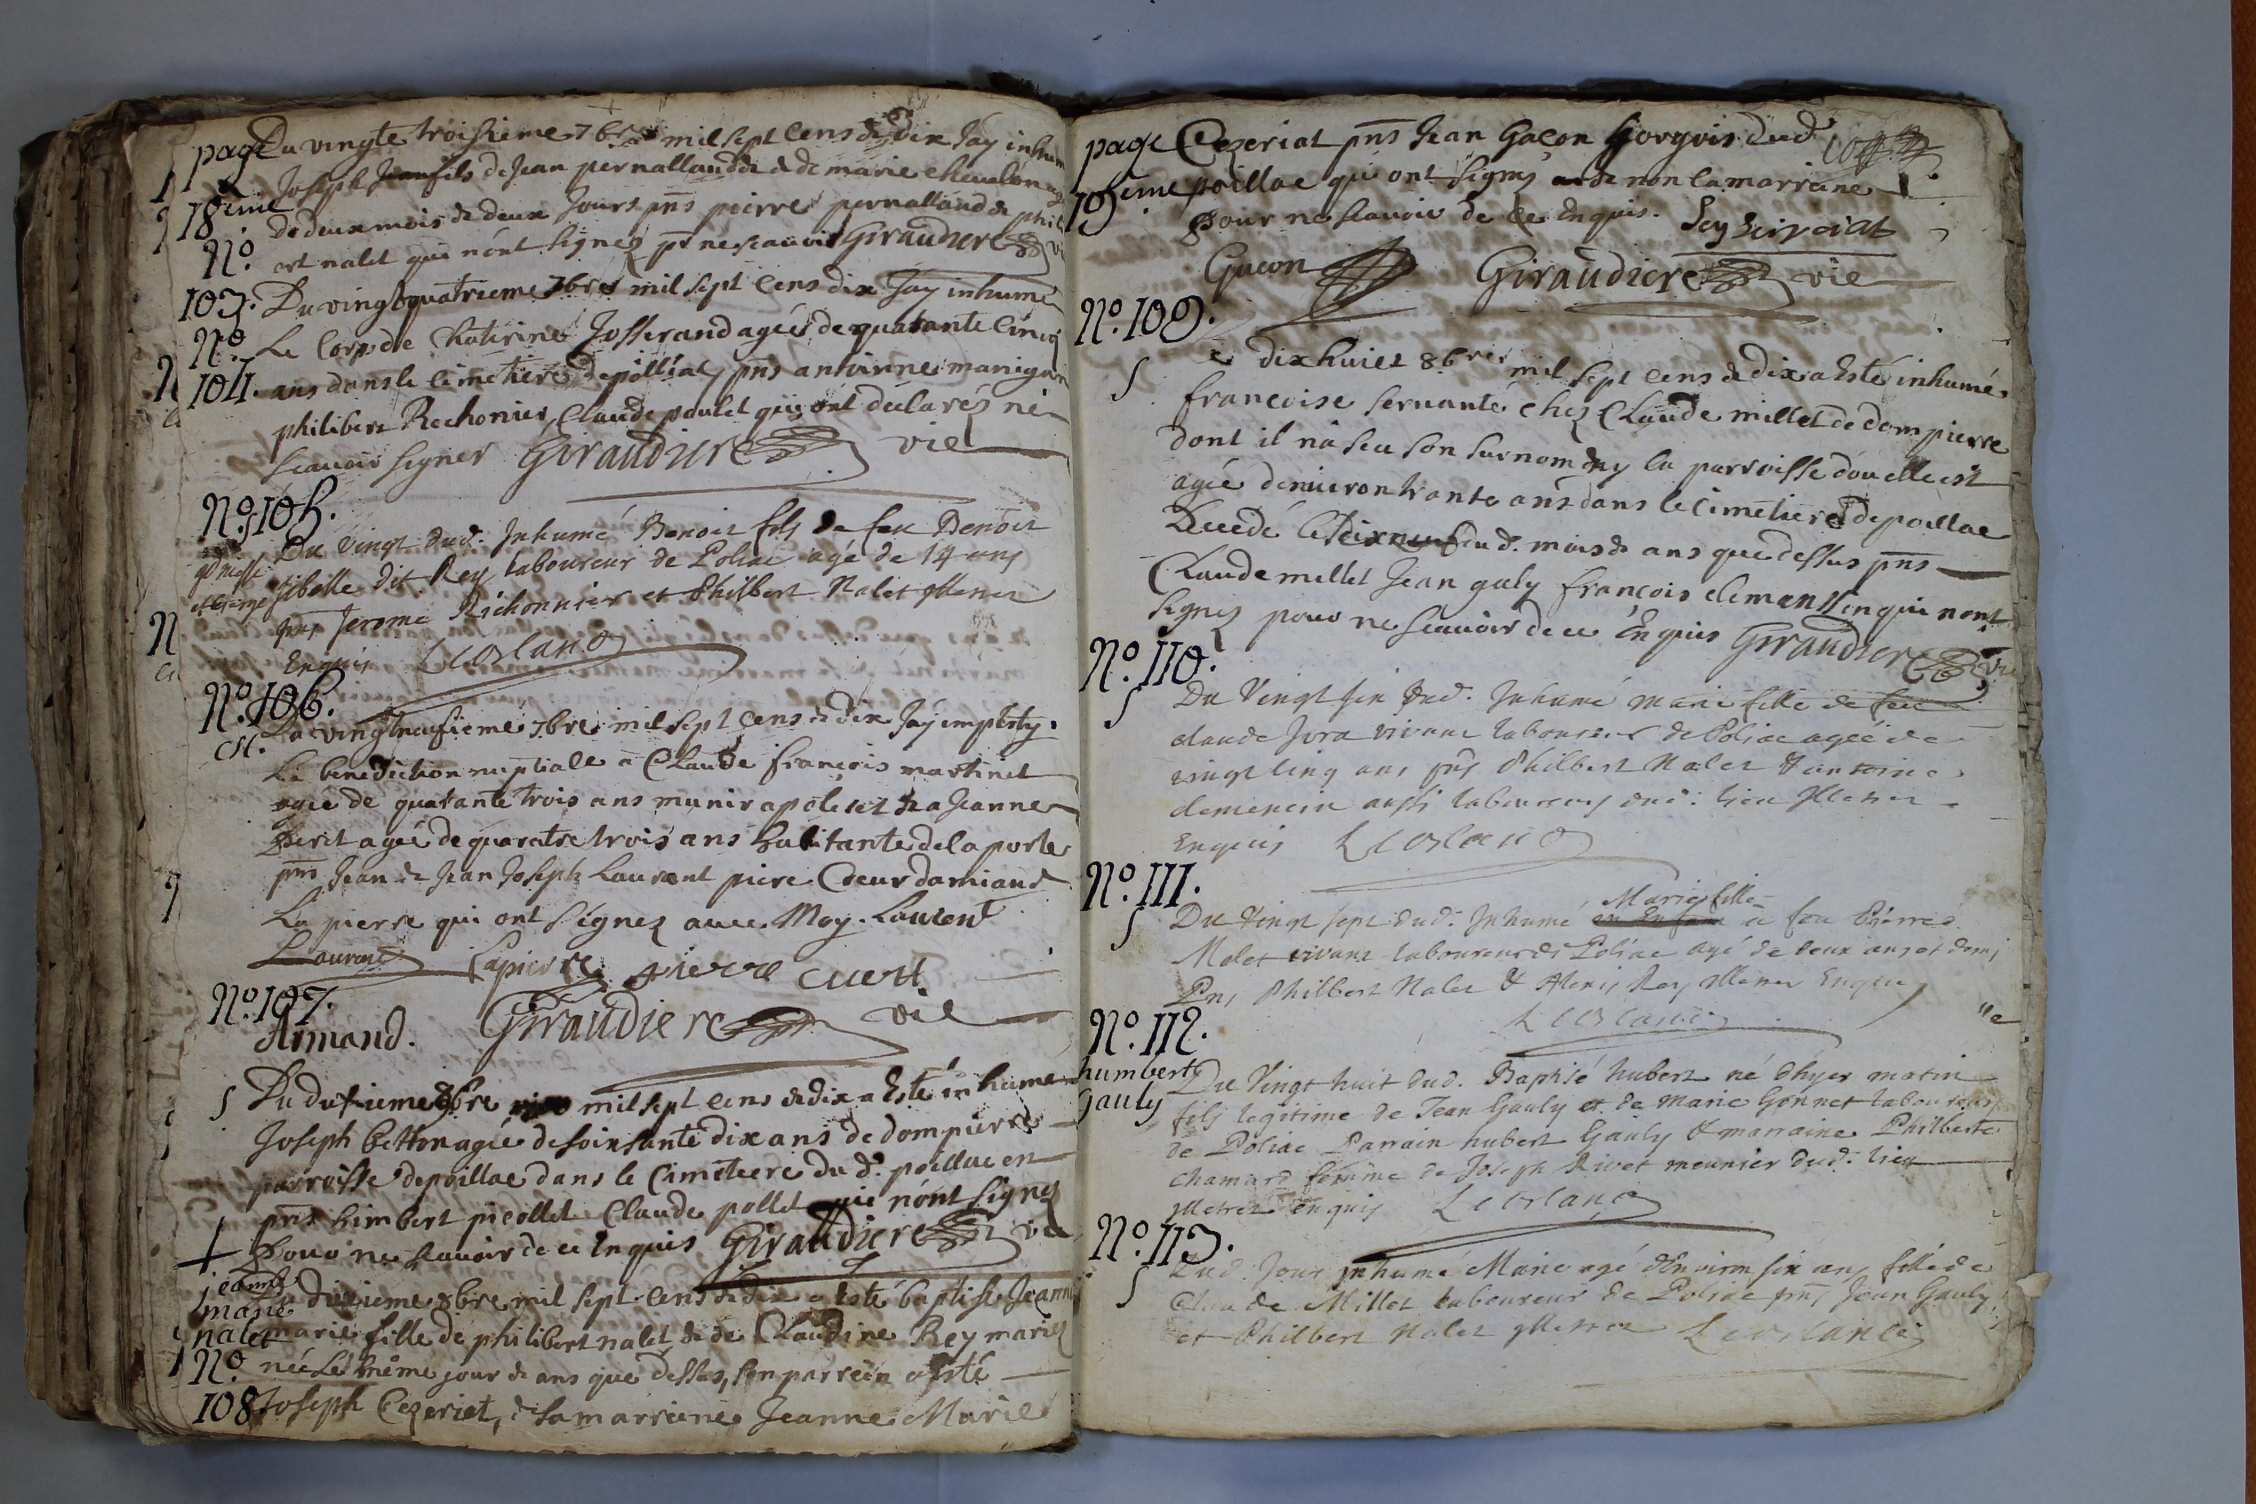 page
18eme
Du vingte troisieme 7bre mil sept cens & dix Jay inhum
Joseph Jean fils de Jean pernalland & de marie
de deux mois & deux Jours pns pierre pernalland & phil
ort nalet qui nont signez pr ne scauoir Giraudiere vic
No.
103.
Du vingt quatrieme 7bre mil sept cens dix Jay inhumé
No
104.
Le Corps de Katerine Josserand agée de quatante cincq
ans dans le cimetiere de polliac pns antoinne manigan
philibert Rechonier, Claude poulet qui ont déclarés ne
scauoir signer Giraudiere vic
No. 105.
Du vingt dud. Inhumé Benoit fils de feu Benoit
sibelle dit Rey laboureur de Poliac agé de 14 ans
pns Jerome Richonnier et Philbert Nalet Illetrez
Enquis
No. 106.
Du vingt neufieme 7bre mil sept cens & dix Jay imparty
La benediction nuptiale a Claude françois martinet
agée de quatante trois ans munir apolecet & a Jeanne
agée de quarante trois ans habitante de la porte
pns Jean & Jean Joseph Laurent piere Cueur damiand
La pierre qui ont signez auec Moy. Laurent
Laurent Lapierre pierre cuert
No. 107.
Armand. Giraudiere vic
S Du dixieme 8bre mil sept cens & dix a Esté inhumé
Joseph Betton agée de soinsante dix ans de dompierre
parroisse de poillac dans le Cimetiere du d. poillac en
pns himbert picollet Claude pollet qui nont signez
pour ne scauoir de ce Enquis Giraudiere vic
jeanne
marie
nalet
Du dixieme 8bre mil sept cens & dix a Esté baptise Jeanne
marie fille de philibert nalet & de Claudine Rey mariez
No.
108
née le même jour & ans que dessus, son parrein a esté
Joseph Cezeriat, & sa marriene Jeanne Marie
page
19eme
Cezeriat pns Jean Gaçon Gorgois dud.
poillac qui ont signez & non la marriane
pour ne scauoir de ce Enquis.
Gacon Giraudiere vic
No. 109.
S
Le dix huict 8bre mil sept cens & dix a Esté inhumé
françoise seruante chez Claude millet de dompierre
dont il nà sceu son surnom ny la parroisse doù elle est
agée denuiron trante ans dans le cimetiere de poillac
Decedé le dix neuf dud. mois & ans que dessus pns
Claude millet Jean galy françois clemensin qui nont
signez pour ne scauoir de ce Enquis Giraudiere vic
No. 110.
S
Du Vingt six dud. Inhumé marie fille de feu
claude Jura vivant laboureur de Poliac agée de
vingt cinq ans pns Philbert Nalet & antoine
clemencin aussi laboureurs dud. lieu Illetrez
Enquis
No. 111.
S
Marie fille
Du Vingt sept dud. Inhumé un Enfant a feu Pierre
Malet vivant laboureur de Poliac agé de deux ans et demi
Pns Philbert Nalet & Alexis Rey Illetrez Enquis
No. 112.
humbert
gauly
Du Vingt huit dud. Baptisé hubert né dhyer matin
fils legitime de Jean Gauly et de Marie Gonnet laboureurs
de Poliac Parrain hubert Gauly & marraine Philberte
chamard femme de Joseph Rivet meunier dud. lieu
Illetrez enquis
No. 113.
S
Dud. Jour Inhumé Marie agé d'Environ six ans fille de
Claude Millet laboureur de Poliac pns Jean Gauly
et Philbert Nalet Illetrez